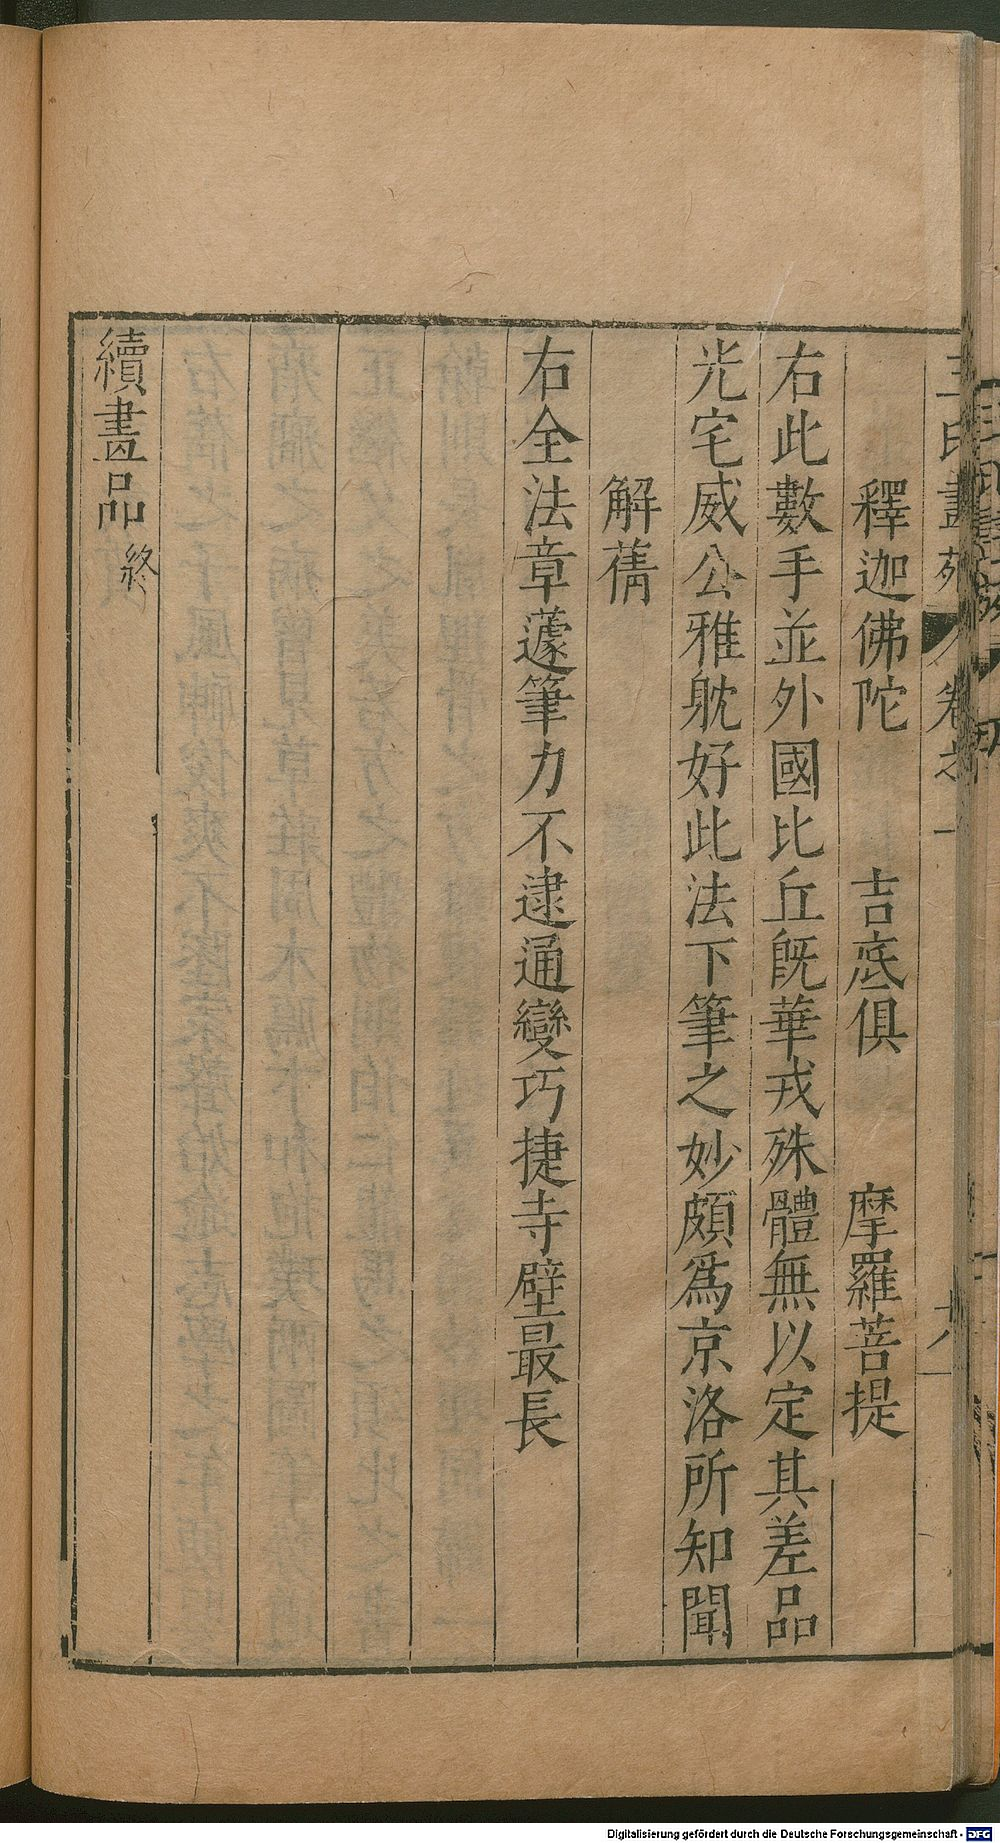 王氏畫苑 卷之一 十八
釋迦佛陀 吉底俱 摩羅菩提
右此數手並外國比丘旣華戎殊體無以定其差品
光宅威公雅躭好此法下筆之妙頗爲京洛所知聞
解蒨
右全法章蘧筆力不逮通變巧捷寺壁最長
續畫品終
Digitalisierung gefördert durch die Deutsche Forschungsgemeinschaft - DFG